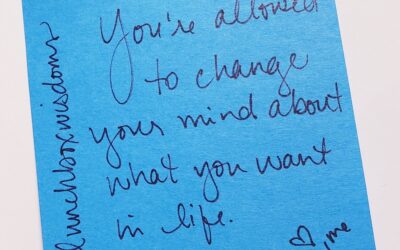 You're allowed
to change
your mind about
what you want
in life.
♡, me
lunchboxwisdoms